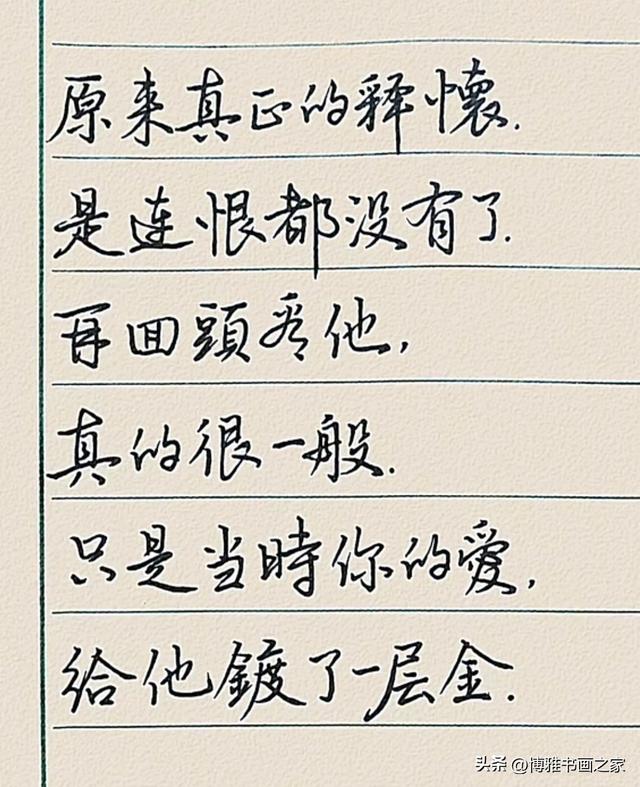 原来真正的释懷.
是连恨都没有了.
再回頭看他,
真的很一般.
只是当時你的愛,
给他鍍了一层金.
头条 @博雅书画之家